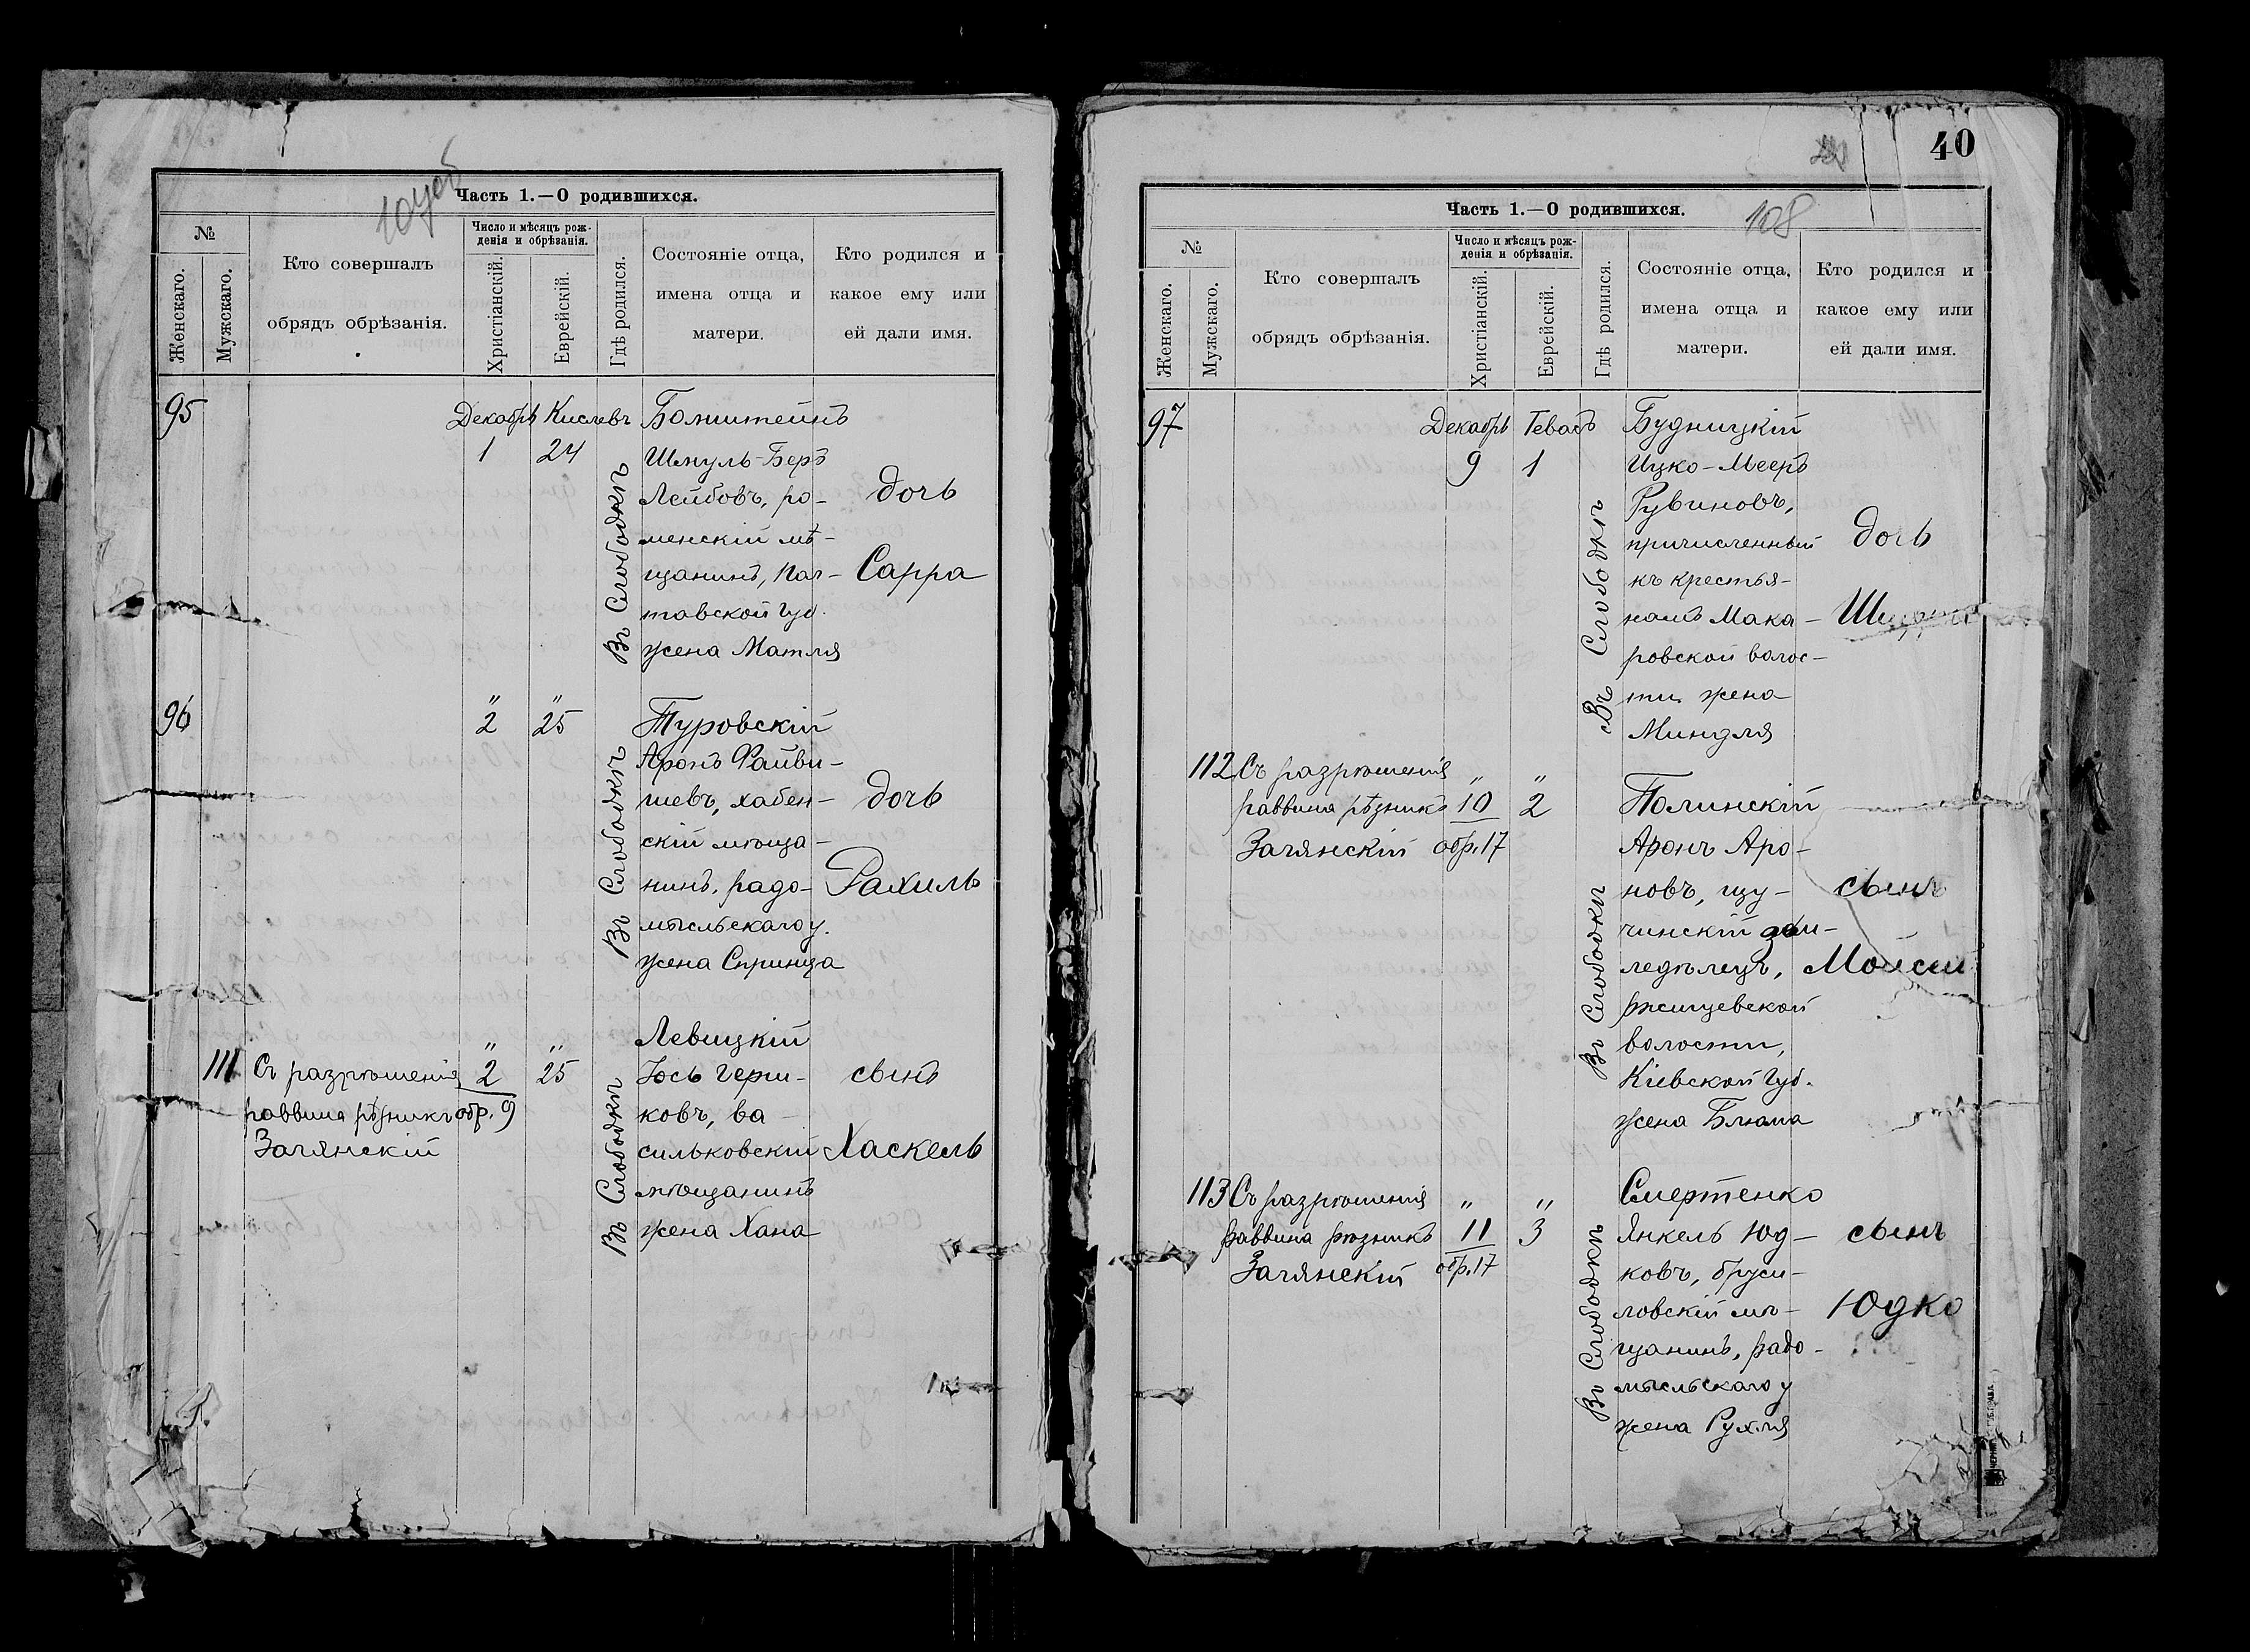 Часть 1.—О родившихся.
№
Женскаго.
Мужскаго.
Кто совершалъ
обрядъ обрѣзанія.
Число и мѣсяцъ рож-
денія и обрѣзанія.
Христіанскій.
Еврейскій.
Гдѣ родился.
Состояніе отца,
имена отца и
матери.
Кто родился и
какое ему или
ей дали имя.
95
Декабрь Кислевъ
1 24
Въ Слободкѣ
Шмуль-Беръ
Лейбовъ, ро-
менскій мѣ-
щанинъ, Пол-
тавской Губ.
жена Матля
дочь
Сарра
96
" "
2 25
Въ Слободкѣ
Туровскій
Аронъ Файви-
шевъ, хабен-
скій мѣща-
нинъ, радо-
мысльскаго у.
жена Спринца
дочь
Рахиль
111
Съ разрѣшенія
раввина рѣзникъ
Заглянскій
" "
2 25
обр. 9
Въ Слободкѣ
Левицкій
Іось Герш-
ковъ, ва-
сильковскій
мѣщанинъ
жена Хана
сынъ
Хаскель
40
108
Часть 1.—О родившихся.
№
Женскаго.
Мужскаго.
Кто совершалъ
обрядъ обрѣзанія.
Число и мѣсяцъ рож-
денія и обрѣзанія.
Христіанскій.
Еврейскій.
Гдѣ родился.
Состояніе отца,
имена отца и
матери.
Кто родился и
какое ему или
ей дали имя.
97
Декабрь Теватъ
9 1
Въ Слободкѣ
Будницкій
Ицко-Мееръ
Рувиновъ,
причисленный
къ крестья-
намъ Мака-
ровской волос-
ти, жена
Миндля
дочь
112
Съ разрѣшенія
раввина рѣзникъ
Заглянскій
" "
10 2
обр. 17
Въ Слободкѣ
Полинскій
Аронъ Аро-
новъ, щу-
чинскій зем-
ледѣлецъ,
ржищевской
волости,
Кіевской Губ.
жена Блюма
сынъ
Мойсей
113
Съ разрѣшенія
раввина рѣзникъ
Заглянскій
" "
11 3
обр. 17
Въ Слободкѣ
Смертенко
Янкель Юд-
ковъ, бруси-
ловскій мѣ-
щанинъ, радо-
мысльскаго у
жена Рухля
сынъ
Юдко